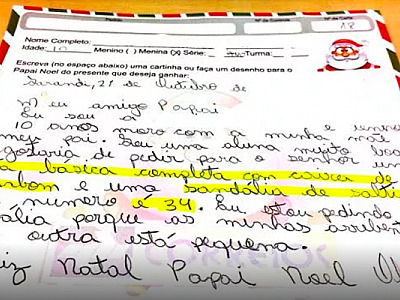 Pedido Nº de Controle Nº da Carta
18
Nome Completo:
Idade: 10 Menino ( ) Menina (X) Série: Turma:
Escreva (no espaço abaixo) uma cartinha ou faça um desenho para o
Papai Noel do presente que deseja ganhar:
Sarandi, 21 de Outubro de
Meu amigo Papai
Eu sou a
10 anos moro com a minha
meu pai. Sou uma aluna muito boa
gostaria de pedir para o senhor um
basica completa com caixa de
bombom e uma sandália de salt
numero é 34. Eu estou pedindo
porque as minhas
outra está pequena.
CORREIOS
iz Natal Papai Noel